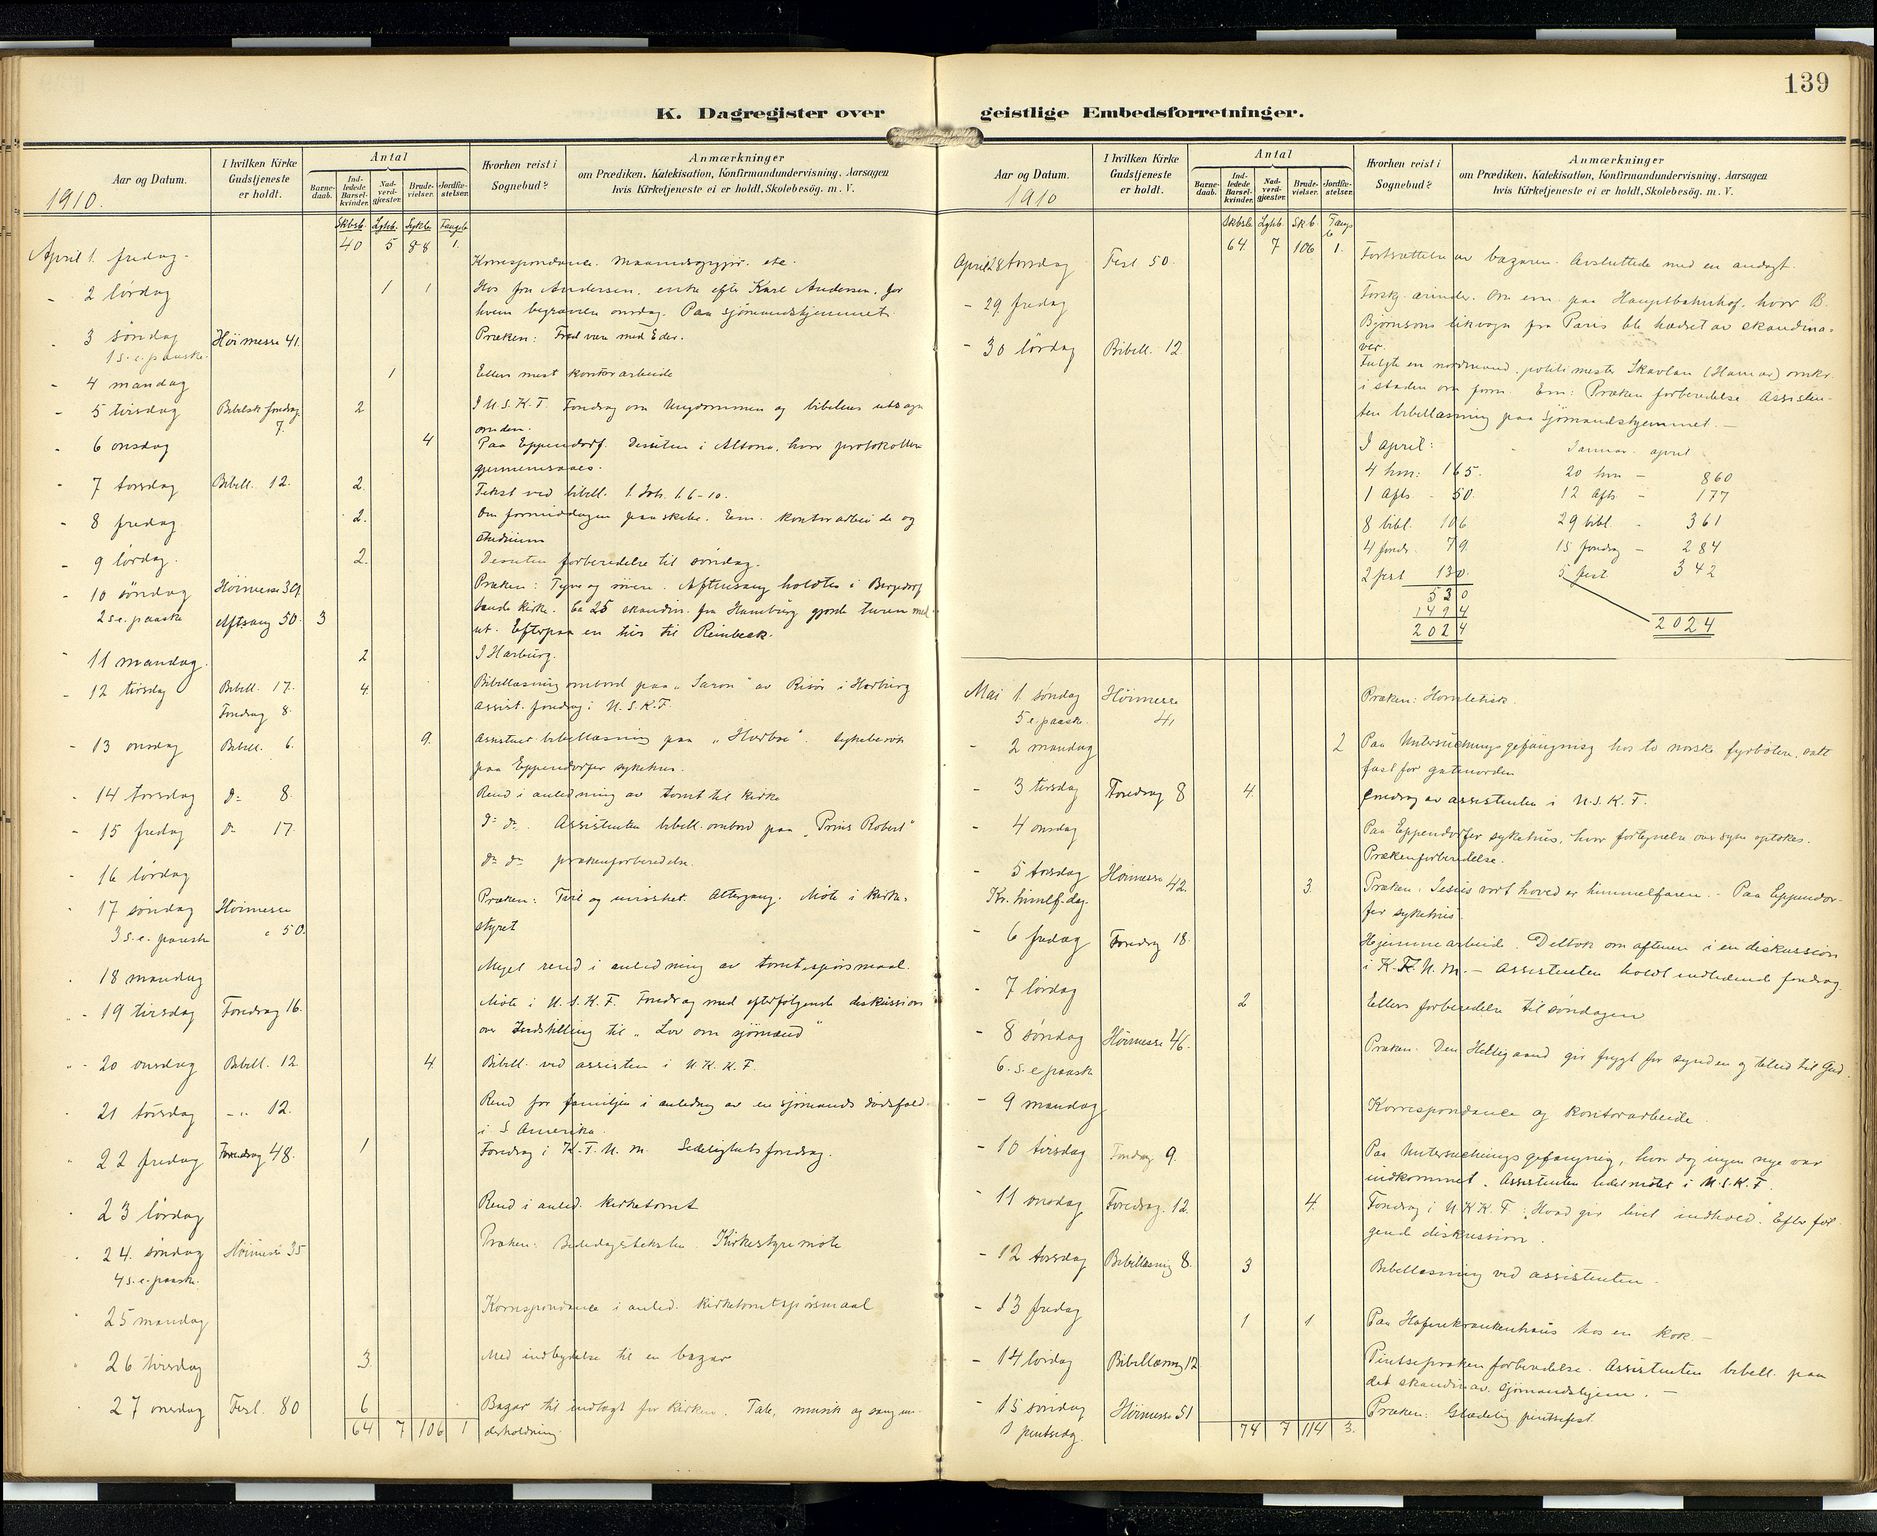 139
K. Dagregister over geistlige Embedsforretninger.
Aar og Datum.
I hvilken Kirke Gudstjeneste er holdt.
Antal
Barnedaab.
Indledede Barselkvinder.
Nadverdgjæster.
Brudevielser.
Jordfæstelser.
Hvorhen reist i Sognebud?
Anmærkninger
om Prædiken, Katekisation, Konfirmandundervisning, Aarsagen
hvis Kirketjeneste ei er holdt, Skolebesøg. m. V.
1910.
Skbsb. Lghb. Sykb. Fangeb.
April 1. fredag. 40 5 88 1. Korrespondance. Maanedsopgjør. etc.
- 2 lørdag 1 1 Hos fru Andersen, enke efter Karl Andersen, for
hvem begravn onsdag. Paa sjømandshjemmet.
- 3 søndag Høimesse 41. Præken: Fred være med Eder.
1 s. e. paaske.
- 4 mandag 1 Ellers mest kontorarbeide
- 5 tirsdag Bibelsk foredrag 7. 2 I U.S.K.T. Foredrag om Ungdommen og bibelens utsagn
om den.
- 6 onsdag 4 Paa Eppendorf. Desuten i Altona, hvor protokollen
gjennemsaaes.
- 7 torsdag Bibell. 12. 2. Tekst ved bibell. 1. Joh. 1.6-10.
- 8 fredag 2. Om formiddagen paa skibe. Em. kontorarbeide og
studium
- 9 lørdag. 2. Desuten forberedelse til søndag.
- 10 søndag Høimesse 39. Præken: Tyve og røvere. Aftensang holdtes i Bergedorf
2 s. e. paaske Aftsang 50. 3 lands kirke. Ca 25 skandin. fra Hamburg gjorde turen med
ut. Efterpaa en tur til Reinbeck.
11 mandag. 2 I Harburg.
- 12 tirsdag Bibell. 17. 4. Bibellæsning ombord paa "Saron" av Risør i Harburg
Foredrag 8. Assist. foredrag i U.S.K.F.
- 13 onsdag Bibell. 6. 9. Assistent bibellæsning paa "Hærbae". Sykebesøk
paa Eppendorfer sykehus.
- 14 torsdag do 8. Rend i anledning av tomt til kirke
- 15 fredag do 17. do do. Assistenten bibell. ombord paa "Prins Robert"
- 16 lørdag do do prækenforberedelse.
- 17 søndag Høimesse Præken: Altergang. Møte i kirke-
3 s. e. paaske " 50. styret
18 mandag Meget rend i anledning av tomtespørsmaal.
- 19 tirsdag Foredrag 16. Møte i U.S.K.F. Foredrag med efterfølgende diskussion
over Indstilling til "Lov om sjømænd"
- 20 onsdag Bibell. 12 4. Bibell. ved assisten i U.K.K.F.
21 torsdag -"- 12. Rend for familjen i anledng av en sjømands dødsfald
i S. Amerika.
22 fredag Foredrag 48. 1 Foredrag i K.F.U.M. Sedelighetsforedrag.
23 lørdag Rend i anled. kirketomt
24. søndag Høimesse 35 Præken: Bededagsteksten Kirkestyremøte
4 s. e. paaske.
25 mandag Korrespondance i anled. kirketomtspørsmaal
26 tirsdag 3. Med indbydelse til en bazar
27 onsdag Fest. 80 6 Bazar til indtægt for kirken. Tale, musik og sang un-
64 7 106 1 derholdning.
Aar og Datum.
I hvilken Kirke Gudstjeneste er holdt.
Antal
Barnedaab.
Indledede Barselkvinder.
Nadverdgjæster.
Brudevielser.
Jordfæstelser.
Hvorhen reist i Sognebud?
Anmærkninger
om Prædiken, Katekisation, Konfirmandundervisning, Aarsagen
hvis Kirketjeneste ei er holdt, Skolebesøg. m. V.
1910
Skbsb. Lghb. Sk.b. Fangeb
April 28 torsdag Fest 50. 64. 7 106 1. Fortsættelse av bazaren. Avsluttede med en andagt.
- 29 fredag Forskj. ærinder. Om em. paa Hauptbahnhof, hvor B.
Bjørnsons likvogn fra Paris ble hædret av skandina-
ver.
- 30 lørdag Bibell. 12. Fulgte en nordmand, politimester Skavlan (Hamar) omkr.
i staden om form. Em: Præken forberedelse Assisten-
ten bibellæsning paa sjømandshjemmet. -
I april: Januar - april
4 hm: 165. 20 hm - 860
1 Afts - 50. 12 Afts - 177
8 bibl. 106 29 bibl. - 361
4 foredr. 79. 15 foredrag - 284
2 fest 130. 5 fest 342
530
1494
2024 2024
Mai 1. søndag Høimesse Præken: Homiletisk.
5 e. paaske. 41
- 2 mandag 2 Paa Untersuchungsgefängnis hos to norske fyrbøtere, satt
fast for gatuorden
- 3 tirsdag Foredrag 8 4. Foredrag av assistenten i U.S.K.F.
- 4 onsdag Paa Eppendorfer sykehus, hvor fortegnelse over syke optokes.
Prækenforberedelse.
- 5 torsdag Høimesse 42. 3. Præken: Jesus vort hoved er himmelfaren. - Paa Eppendor-
Kr. himlf. dag. fer sykehus.
- 6 fredag Foredrag 18. Hjemmearbeide. Deltok om aftenen i en diskussion
i K.F.U.M. - Assistenten holdt indledende foredrag.
- 7 lørdag 2 Ellers forberedelse til søndagen
- 8 søndag Høimesse 46. Præken. Den Helligaand gir frygt for synden og tillid til Gud.
6. s. e paaske
- 9 mandag Korrespondance og kontorarbeide.
- 10 tirsdag Foredrag 9. Paa Untersuchungsgefängnis, hvor dog ingen nye var
indkommet. Assistenten ledet møtet i U.S.K.F.
- 11 onsdag Foredrag. 12. 4. Foredrag i U.K.K.F: "Hvad gir livet indhold". Efterføl-
gende diskussion.
- 12 torsdag Bibellæsning 8. 3 Bibellæsning ved assistenten.
- 13 fredag 1 1 Paa Hafenkrankenhaus hos en kok. -
- 14 lørdag Bibellæsning 12 Pintsepræken forberedelse. Assistenten bibell. paa
det skandinav. sjømandshjem. -
- 15 søndag Høimesse 51 Præken: Glædelig pintsefest.
1 pintsedg. 74 7 114 3.